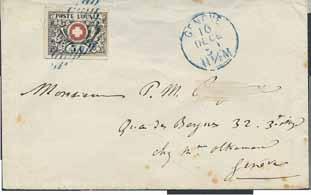 POSTE LOCALE
GENÈVE
16
DECE
5
11½M
Monsieur P. M.
Quai des Bergues 32. 3e étage
chez Mme
Genève